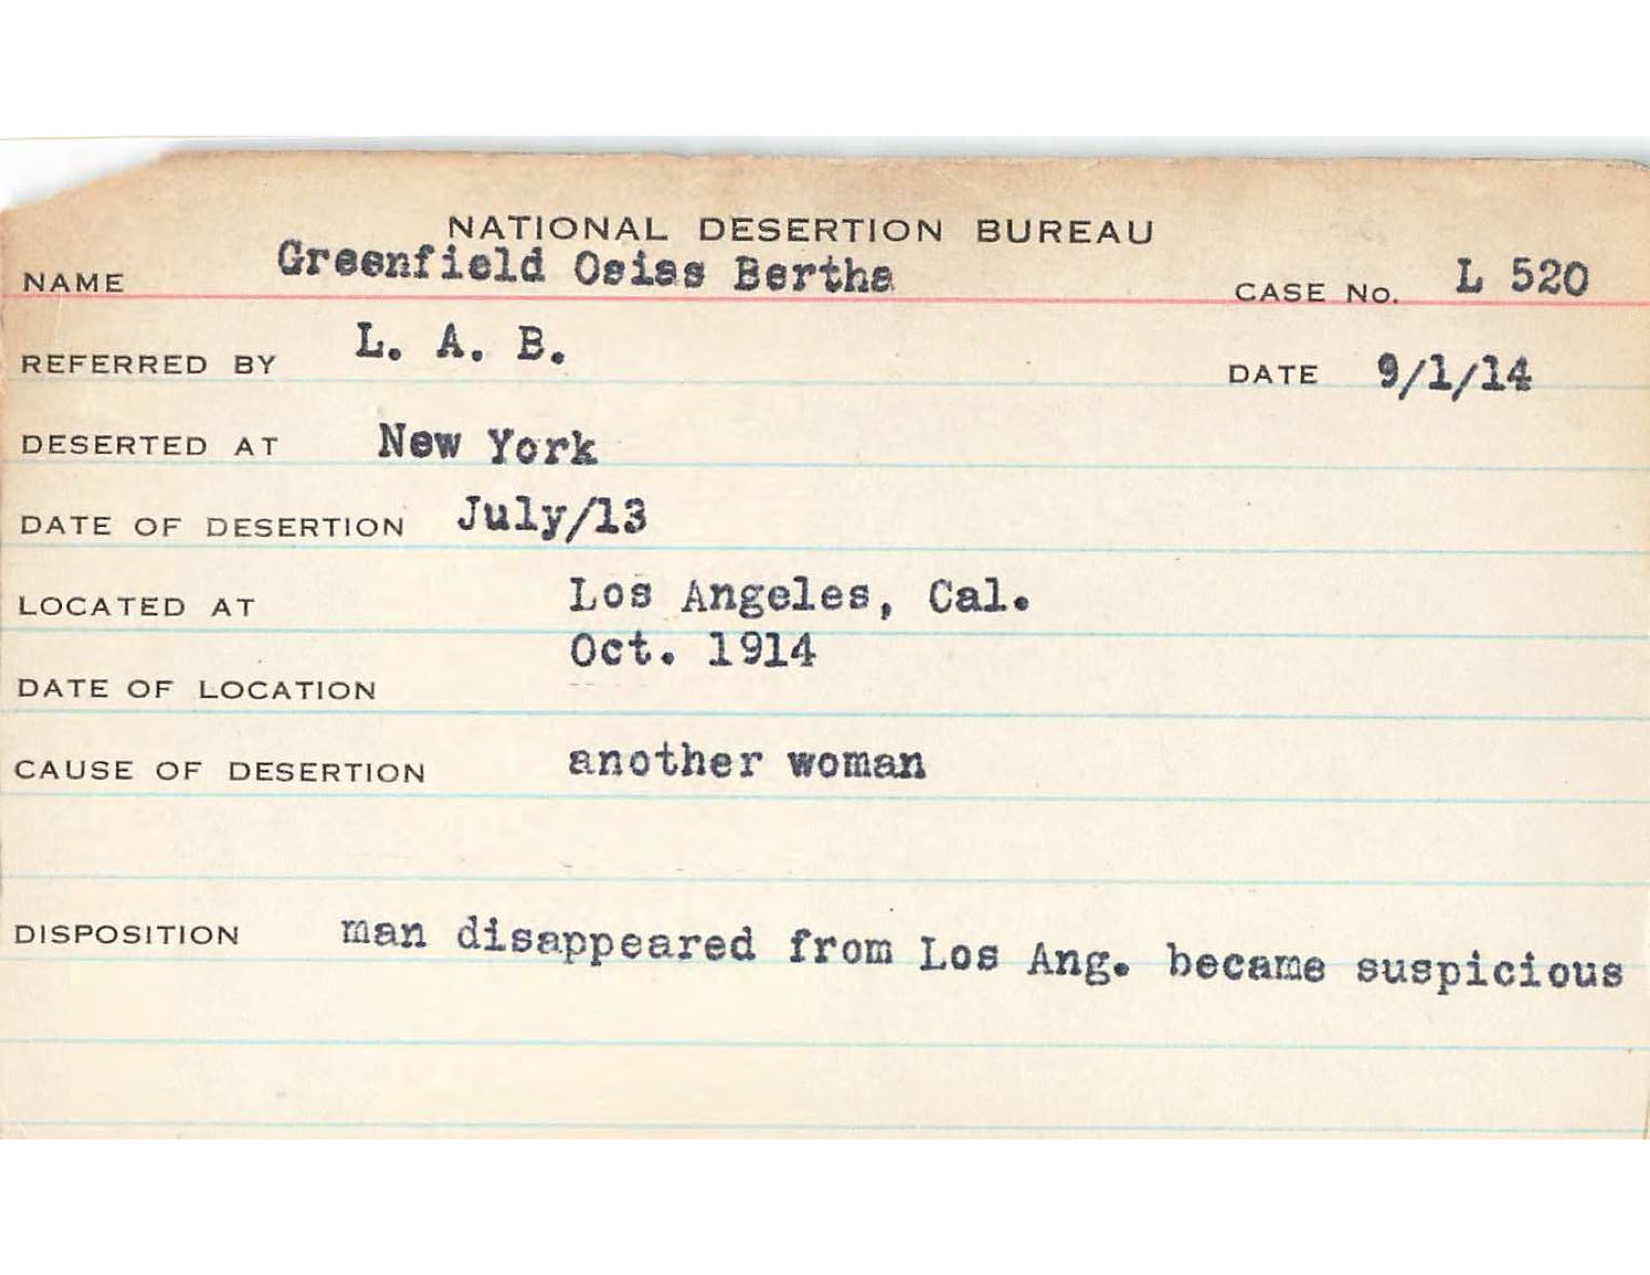 NATIONAL DESERTION BUREAU
NAME Greenfield Osias Bertha CASE No. L 520
REFERRED BY L. A. B. DATE 9/1/14
DESERTED AT New York
DATE OF DESERTION July/13
LOCATED AT Los Angeles, Cal.
DATE OF LOCATION Oct. 1914
CAUSE OF DESERTION another woman
DISPOSITION man disappeared from Los Ang. became suspicious